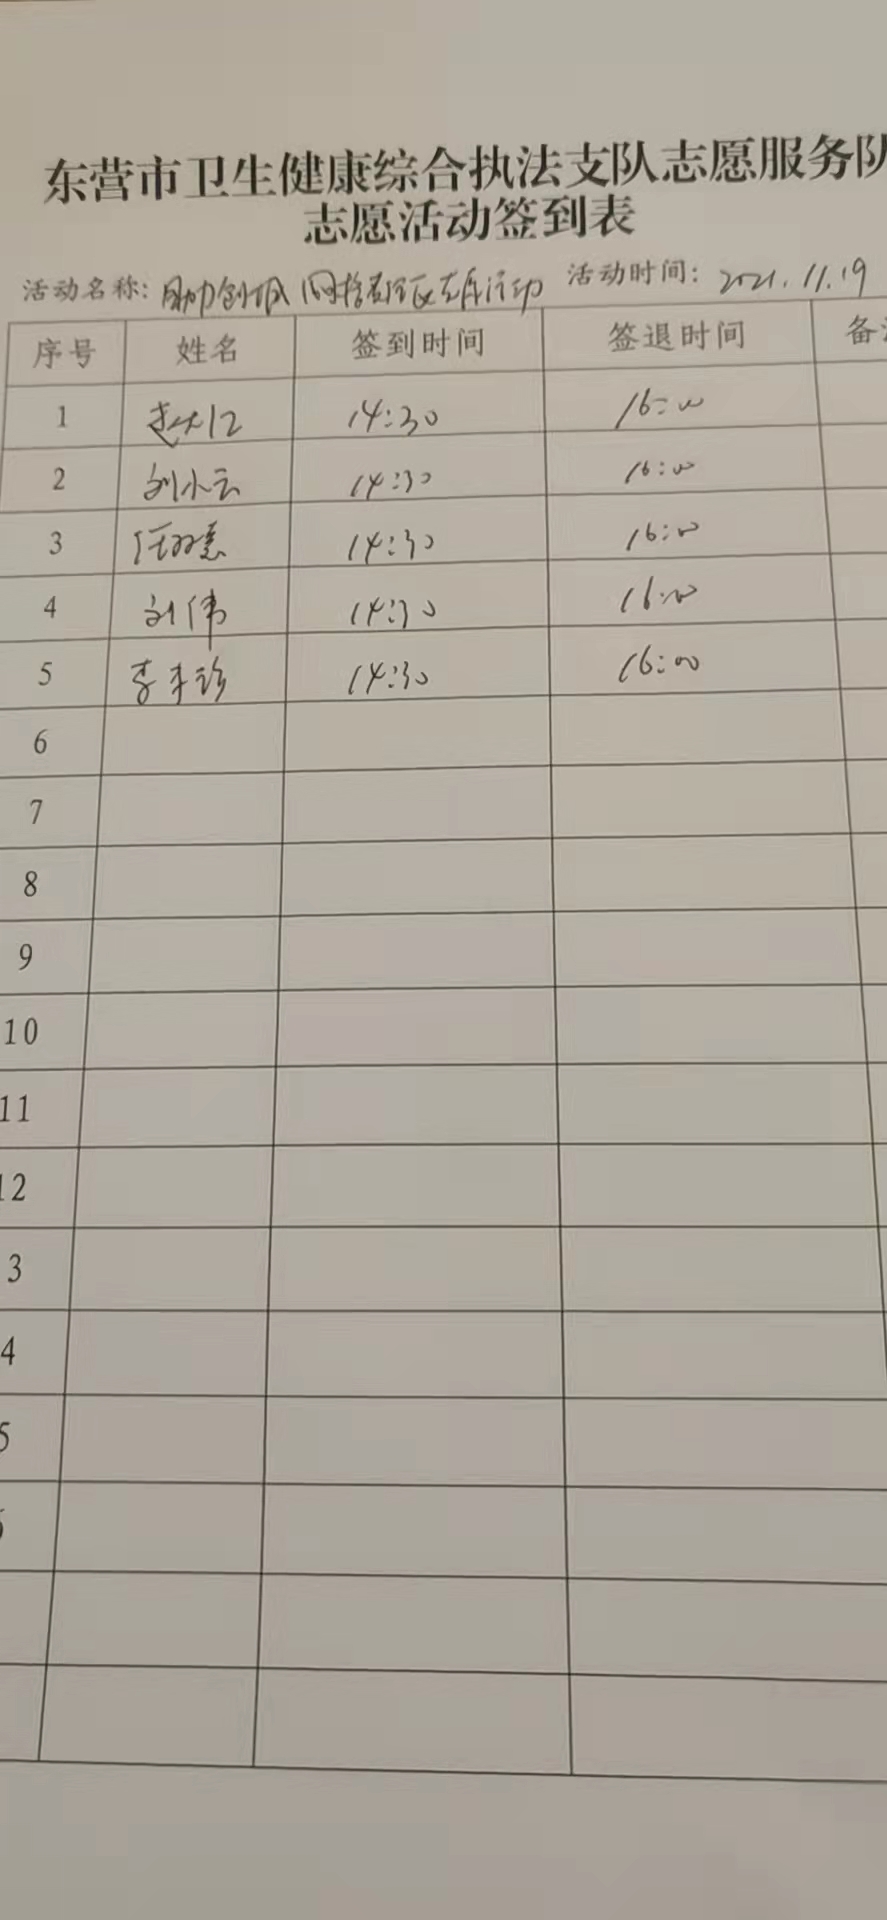 东营市卫生健康综合执法支队志愿服务队
志愿活动签到表
活动名称: 助力创城 网格责任区志愿活动 活动时间: 2021.11.19
序号 姓名 签到时间 签退时间 备
1 14:30 16:00
2 刘小云 14:30 16:00
3 任双慧 14:30 16:00
4 刘伟 14:30 16:00
5 李 珍 14:30 16:00
6
7
8
9
10
11
12
3
4
5